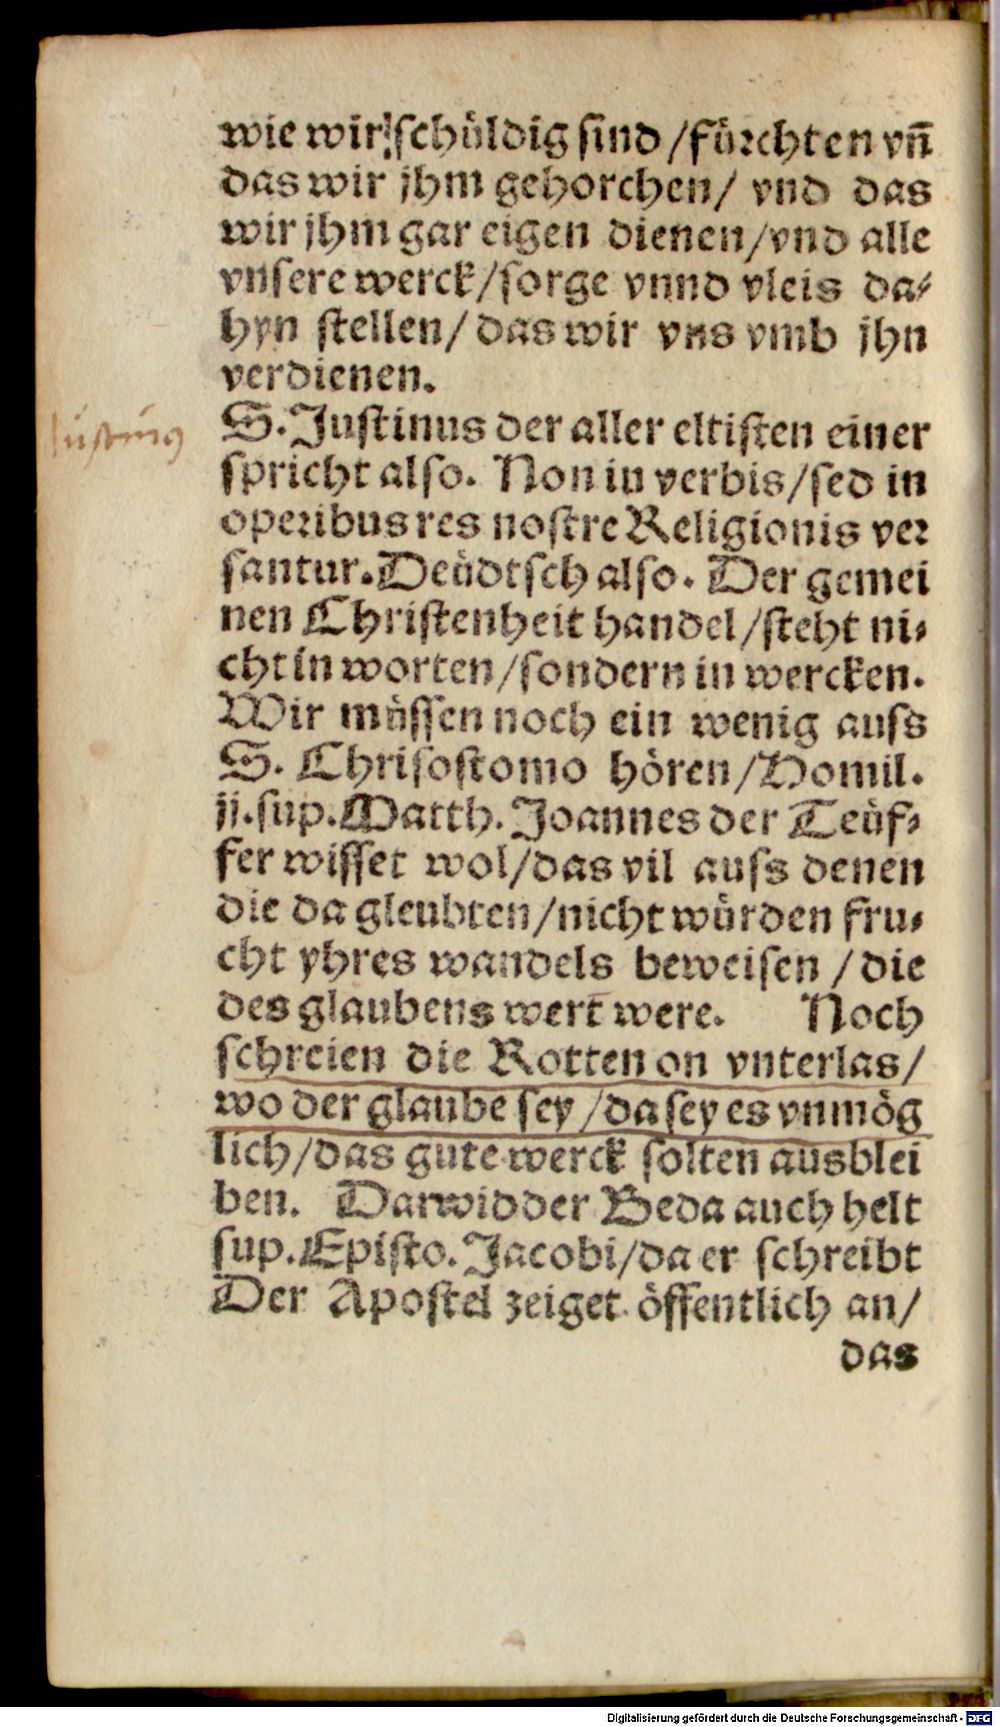 wie wir schüldig sind /fürchten vñ
das wir jhm gehorchen/ vnd das
wir jhm gar eigen dienen/vnd alle
vnsere werck/sorge vnnd vleis da-
hyn stellen/ das wir vns vmb jhn
verdienen.
Justinus
S. Justinus der aller eltisten einer
spricht also. Non in verbis/sed in
operibus res nostre Religionis ver
santur. Deüdtsch also. Der gemei
nen Christenheit handel/steht ni-
cht in worten/sondern in wercken.
Wir müssen noch ein wenig auss
S. Chrisostomo hören/Homil.
ij. sup. Matth. Joannes der Teüf-
fer wisset wol/das vil auss denen
die da gleubten/nicht würden fru-
cht yhres wandels beweisen /die
des glaubens wert were. Noch
schreien die Rotten on vnterlas/
wo der glaube sey /da sey es vnmög
lich/das gute werck solten ausblei
ben. Darwidder Beda auch helt
sup. Episto. Jacobi/da er schreibt
Der Apostel zeiget öffentlich an/
das
Digitalisierung gefördert durch die Deutsche Forschungsgemeinschaft - DFG